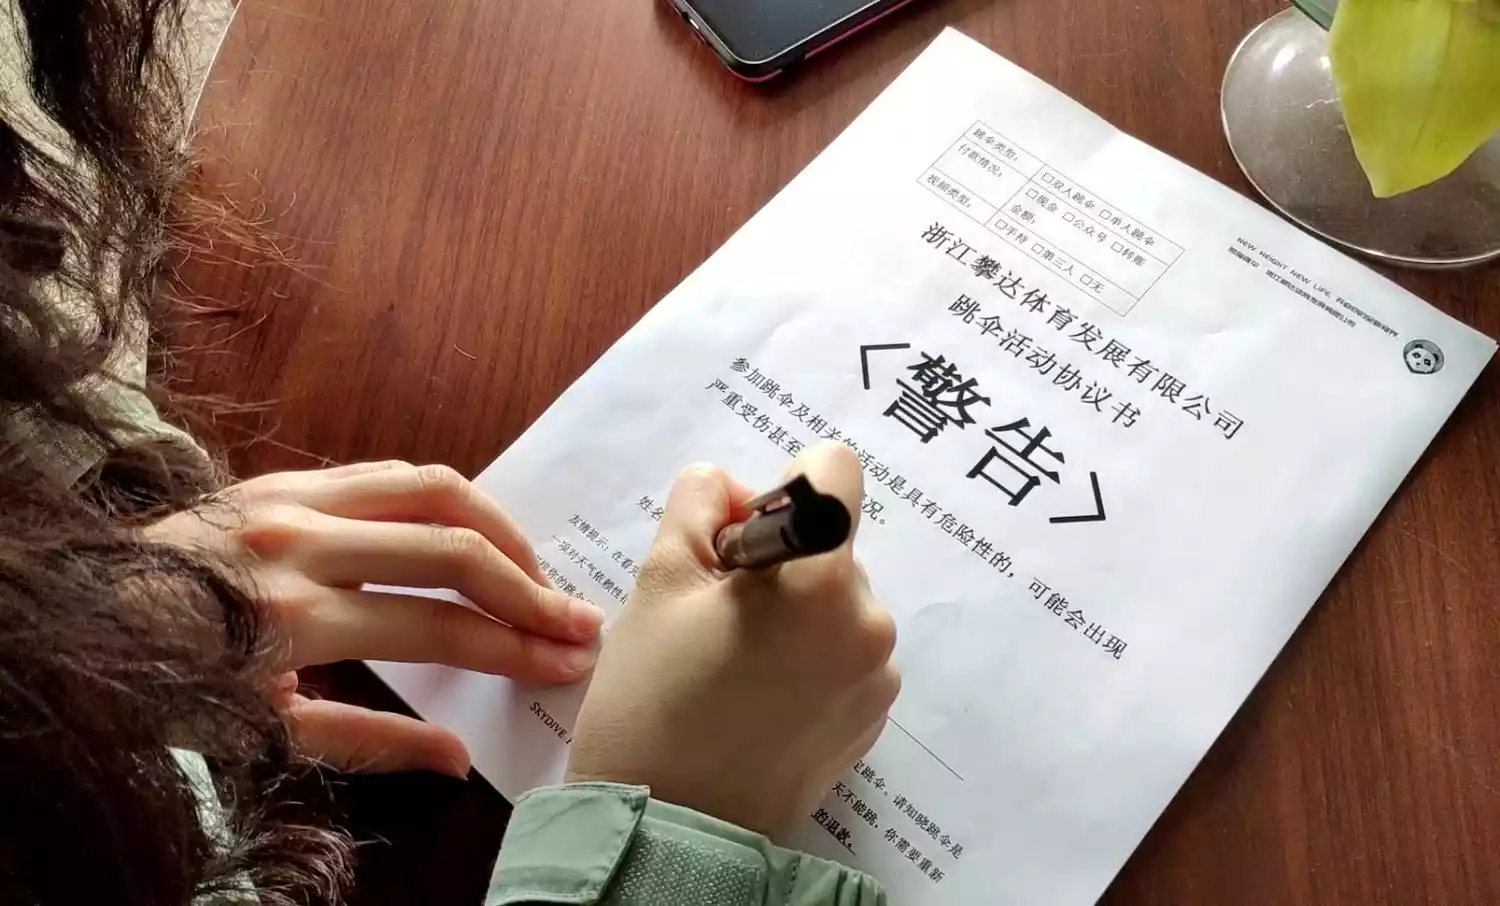 NEW HEIGHT NEW LIFE
跳伞类型： □双人跳伞 □单人跳伞
付款情况： □现金 □公众号 □转账
金额：
视频类型： □手持 □第三人 □无
浙江攀达体育发展有限公司
跳伞活动协议书
<警告>
参加跳伞及相关的活动是具有危险性的，可能会出现
严重受伤甚至 情况。
姓名
友情提示：在看完 跳伞。请知晓跳伞是
一项对天气依赖性 天不能跳，你需要重新
的跳伞 的退款。
SKYDIVE